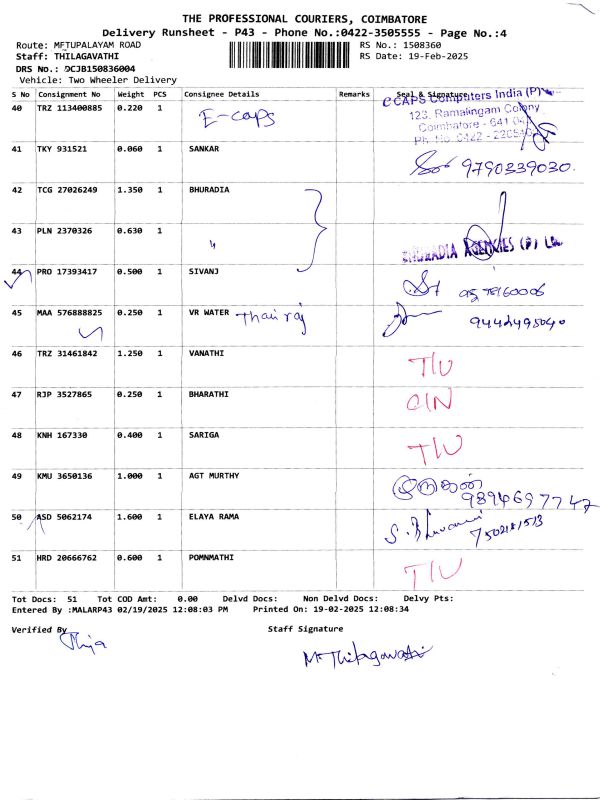 THE PROFESSIONAL COURIERS, COIMBATORE
Delivery Runsheet - P43 - Phone No.:0422-3505555 - Page No.:4
Route: METUPALAYAM ROAD
RS No.: 1508360
Staff: THILAGAVATHI
RS Date: 19-Feb-2025
DRS No.: DCJB150836004
Vehicle: Two Wheeler Delivery
S No Consignment No Weight PCS Consignee Details Remarks Seal & Signature
40 TRZ 113400885 0.220 1 E-caps
eCAPS Computers India (P)
123, Ramalingam Colony
Coimbatore - 641
Ph. No: 0422 -
41 TKY 931521 0.060 1 SANKAR 9790339030.
42 TCG 27026249 1.350 1 BHURADIA
43 PLN 2370326 0.630 1 "
BHURADIA AGENCIES (P) Ltd.
44 PRO 17393417 0.500 1 SIVANJ
45 MAA 576888825 0.250 1 VR WATER Thairaj 9442495040
46 TRZ 31461842 1.250 1 VANATHI T/U
47 RJP 3527865 0.250 1 BHARATHI C/N
48 KNH 167330 0.400 1 SARIGA T/U
49 KMU 3650136 1.000 1 AGT MURTHY 9894697747
50 ASD 5062174 1.600 1 ELAYA RAMA
51 HRD 20666762 0.600 1 POMNMATHI T/U
Tot Docs: 51 Tot COD Amt: 0.00 Delvd Docs: Non Delvd Docs: Delvy Pts:
Entered By :MALARP43 02/19/2025 12:08:03 PM Printed On: 19-02-2025 12:08:34
Verified By
Staff Signature
M. Thilagavathi